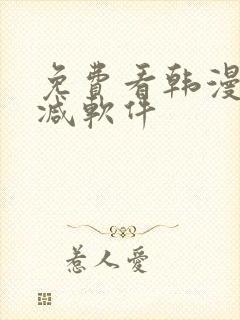 免費看韩漫
减軟件
惹人愛